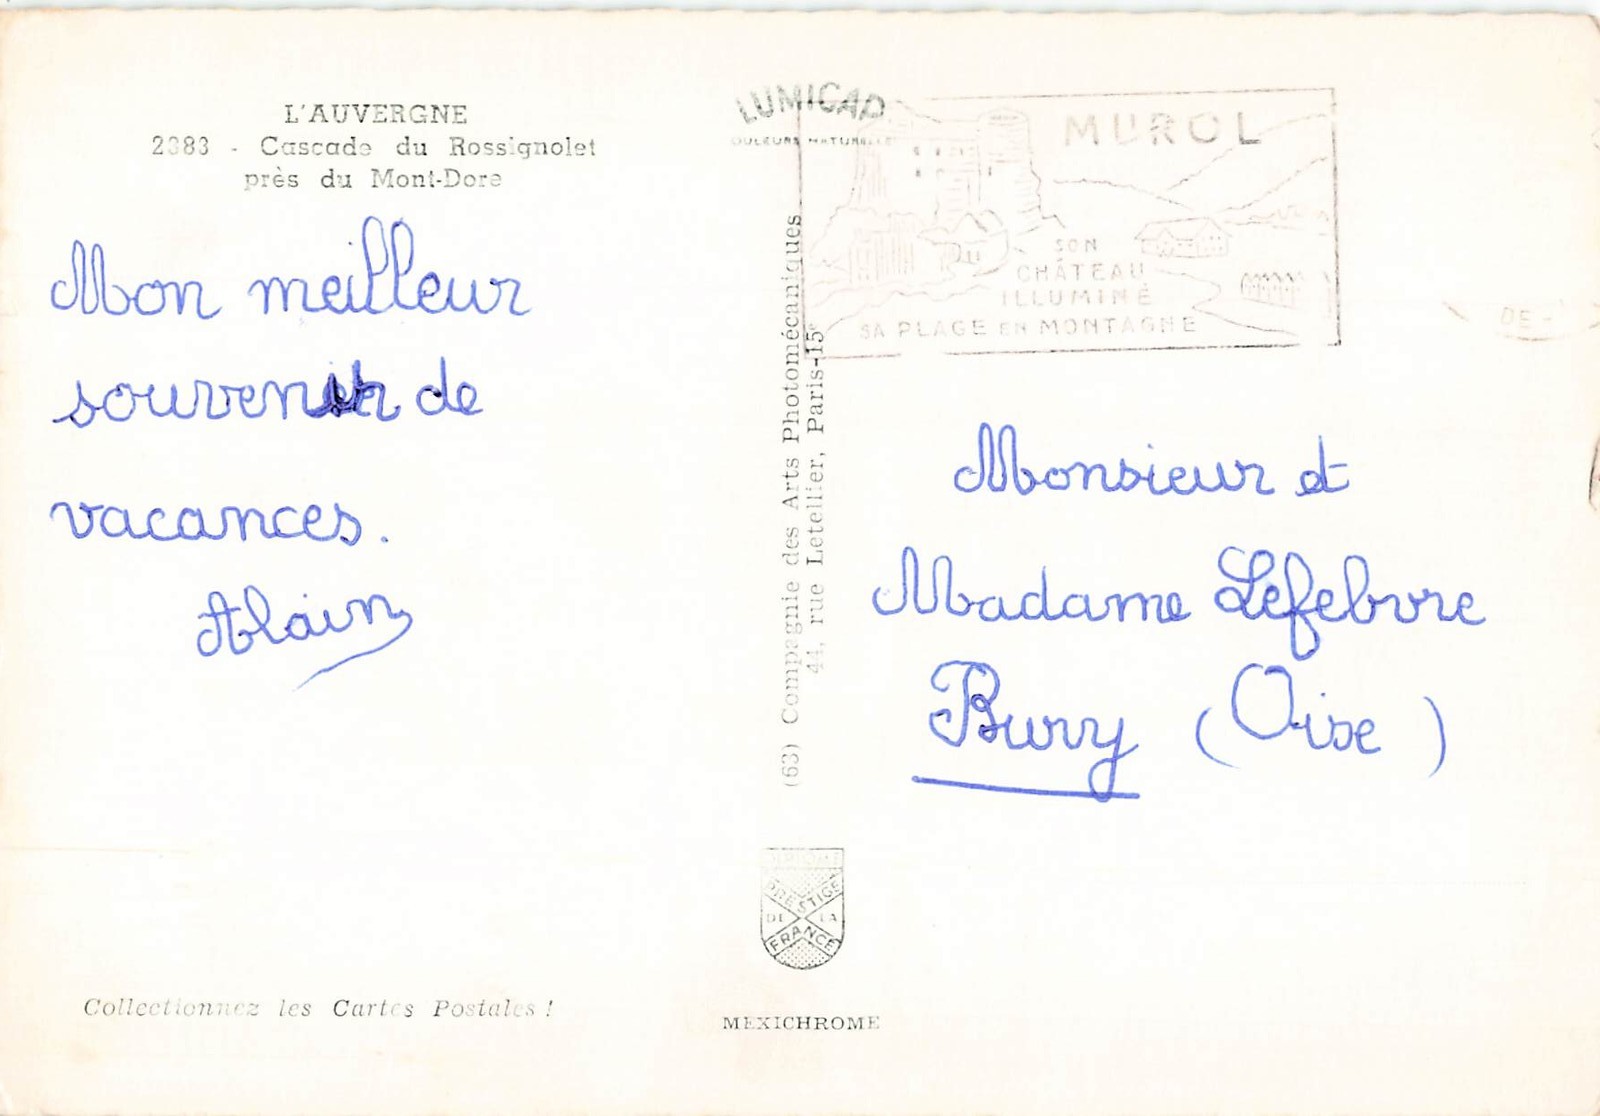 L'AUVERGNE
2383 - Cascade du Rossignolet
près du Mont-Dore
Mon meilleur
souvenir de
vacances.
Alain
LUMICAP
COULEURS NATURELLES
MUROL
SON
CHÂTEAU
ILLUMINÉ
SA PLAGE EN MONTAGNE
(63) Compagnie des Arts Photomécaniques
44, rue Letellier, Paris-15e
DE -
Monsieur et
Madame Lefebvre
Bury (Oise)
DIPLOME
PRESTIGE
DE LA
FRANCE
Collectionnez les Cartes Postales !
MEXICHROME